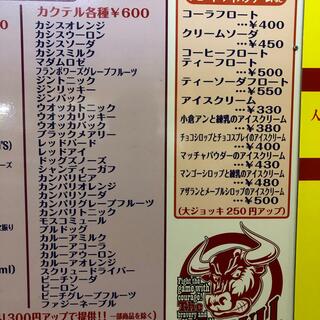 カクテル各種￥600
カシスオレンジ
カシスウーロン
カシスソーダ
カシスミルク
マダムロゼ
フランボワーズグレープフルーツ
ジントニック
ジンリッキー
ジンバック
ウオッカトニック
ウオッカリッキー
ウオッカバック
ブラッディメアリー
レッドバード
レッドアイ
ドッグズノーズ
シャンディーガフ
カンパリビア
カンパリオレンジ
カンパリソーダ
カンパリグレープフルーツ
カンパリトニック
モスコミュール
ブルドッグ
カルーアミルク
カルーアコーラ
カルーアウーロン
スクリュードライバー
ピーチソーダ
ピーチウーロン
ピーチグレープフルーツ
ファジーネーブル
300円アップで提供!!（一部商品を除く）
コーラフロート
…￥400
クリームソーダ
…￥450
コーヒーフロート
ティーフロート
…￥500
ティーソーダフロート
…￥550
アイスクリーム
…￥330
小倉アンと練乳のアイスクリーム
…￥380
チョコシロップとチョコスプレイのアイスクリーム
…￥400
マッチャパウダーのアイスクリーム
…￥430
マンゴーシロップと練乳のアイスクリーム
…￥480
アザランとメープルシロップのアイスクリーム
…￥500
（大ジョッキ 250円アップ）
Fight the
game with
courage!
bravery and